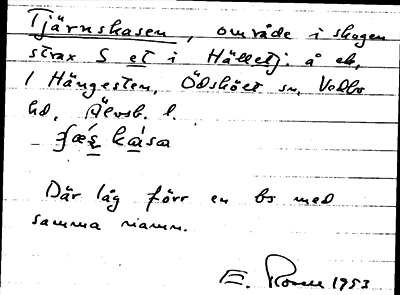 Tjärnskasen, område i skogen
strax S et i Hälletj. å ek.
1 Hängesten, Ödskölt sn, Vedbo
hd, Älvsb. l.
kasa
Där låg förr en bs med
samma namn.
E. 1953